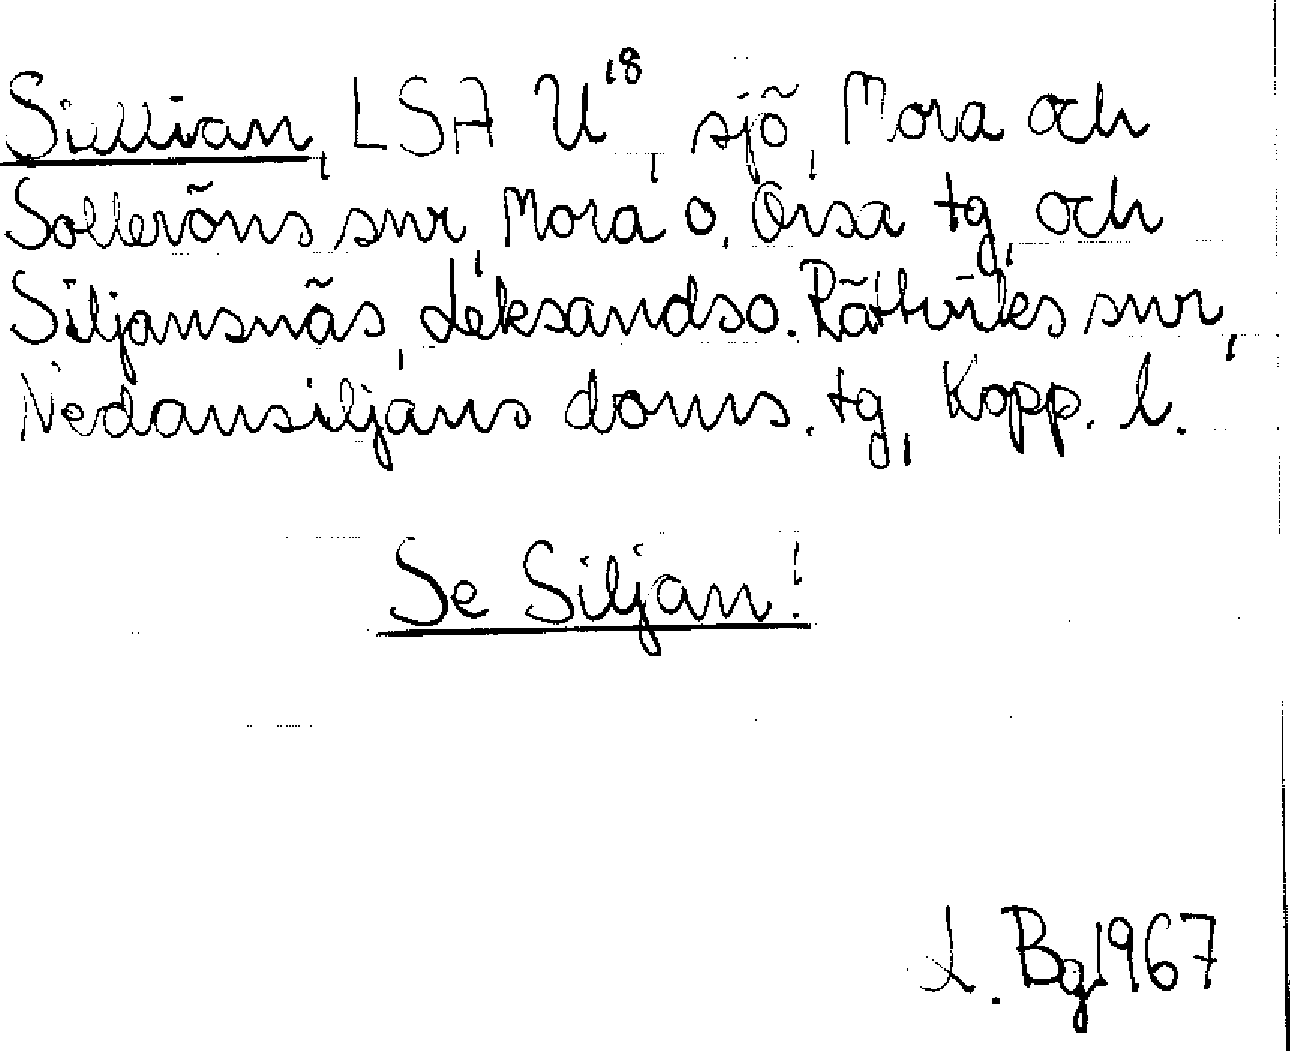 Sillian, LSA U¹⁸, sjö, Mora och
Solleröns snr, Mora o. Orsa tg, och
Siljansnäs, Leksands o. Rättviks snr,
Nedansiljans doms. tg, Kopp. l.
Se Siljan!
L. Bg 1967